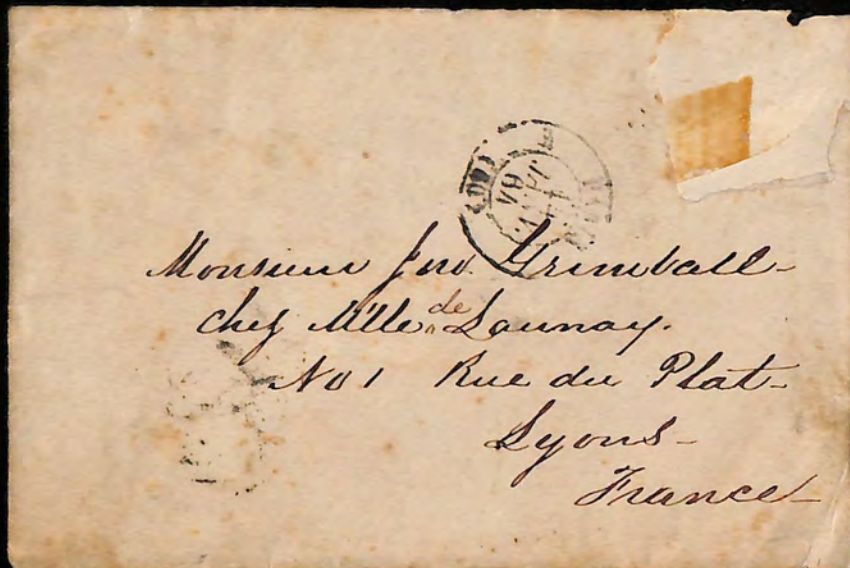 Monsieur Jno. Grimball
chez Mlle de Launay.
No 1 Rue du Plat
Lyons
France